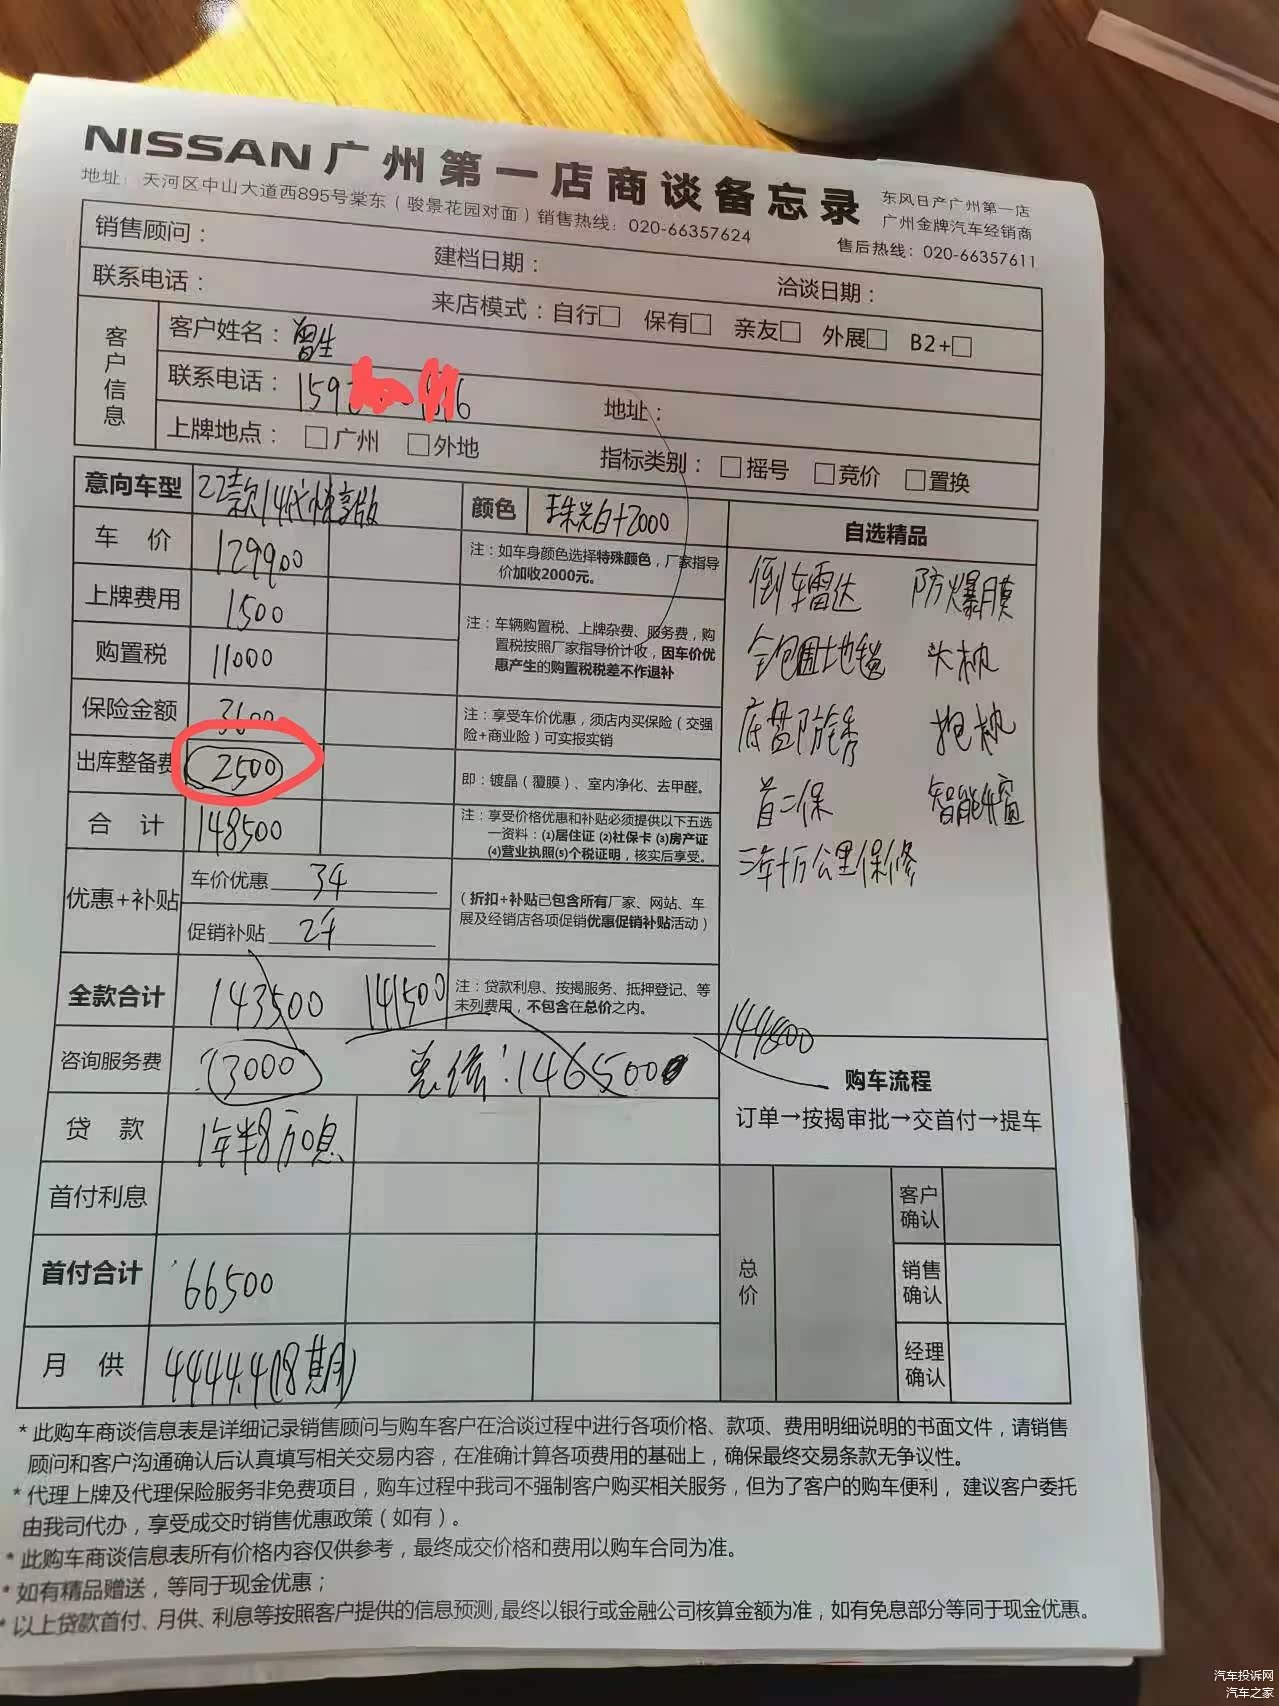 NISSAN 广州第一店商谈备忘录
东风日产广州第一店
广州金牌汽车经销商
地址：天河区中山大道西895号棠东（骏景花园对面）销售热线：020-66357624
售后热线：020-66357611
销售顾问：
建档日期：
洽谈日期：
联系电话：
来店模式：自行□ 保有□ 亲友□ 外展□ B2+□
客户信息
客户姓名：曾生
联系电话：159
地址：
上牌地点：□广州 □外地
指标类别：□摇号 □竞价 □置换
意向车型 22款14代悦享版
颜色 珠光白+2000
自选精品
车 价 129900
注：如车身颜色选择特殊颜色，厂家指导
价加收2000元。
上牌费用 1500
购置税 11000
注：车辆购置税、上牌杂费、服务费，购
置税按照厂家指导价计收，因车价优
惠产生的购置税税差不作退补
保险金额 3600
注：享受车价优惠，须店内买保险（交强
险+商业险）可实报实销
出库整备费 2500
即：镀晶（覆膜）、室内净化、去甲醛。
合 计 148500
注：享受价格优惠和补贴必须提供以下五选
一资料：⑴居住证 ⑵社保卡 ⑶房产证
⑷营业执照⑸个税证明，核实后享受。
倒车雷达 防爆膜
全包围地毯 头枕
底盘防锈 抱枕
首二保 智能车窗
三年十万公里保修
优惠+补贴
车价优惠 3千
促销补贴 2千
（折扣+补贴已包含所有厂家、网站、车
展及经销店各项促销优惠促销补贴活动）
全款合计 143500 141500
注：贷款利息、按揭服务、抵押登记、等
未列费用，不包含在总价之内。
144800
咨询服务费 3000
总价：146500
购车流程
订单→按揭审批→交首付→提车
贷 款 1年半8万0息
首付利息
首付合计 66500
月 供 4444.4(18期)
总价
客户确认
销售确认
经理确认
*此购车商谈信息表是详细记录销售顾问与购车客户在洽谈过程中进行各项价格、款项、费用明细说明的书面文件，请销售
顾问和客户沟通确认后认真填写相关交易内容，在准确计算各项费用的基础上，确保最终交易条款无争议性。
*代理上牌及代理保险服务非免费项目，购车过程中我司不强制客户购买相关服务，但为了客户的购车便利， 建议客户委托
由我司代办，享受成交时销售优惠政策（如有）。
*此购车商谈信息表所有价格内容仅供参考，最终成交价格和费用以购车合同为准。
*如有精品赠送，等同于现金优惠；
*以上贷款首付、月供、利息等按照客户提供的信息预测,最终以银行或金融公司核算金额为准，如有免息部分等同于现金优惠。
汽车投诉网
汽车之家